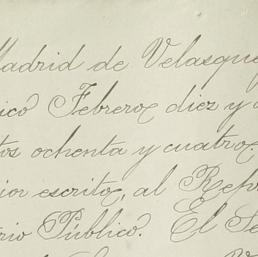 Madrid de Velasque
ico Febrero diez y
tos ochenta y cuatro.
ior escrito, al Rep
rio Público. El Se